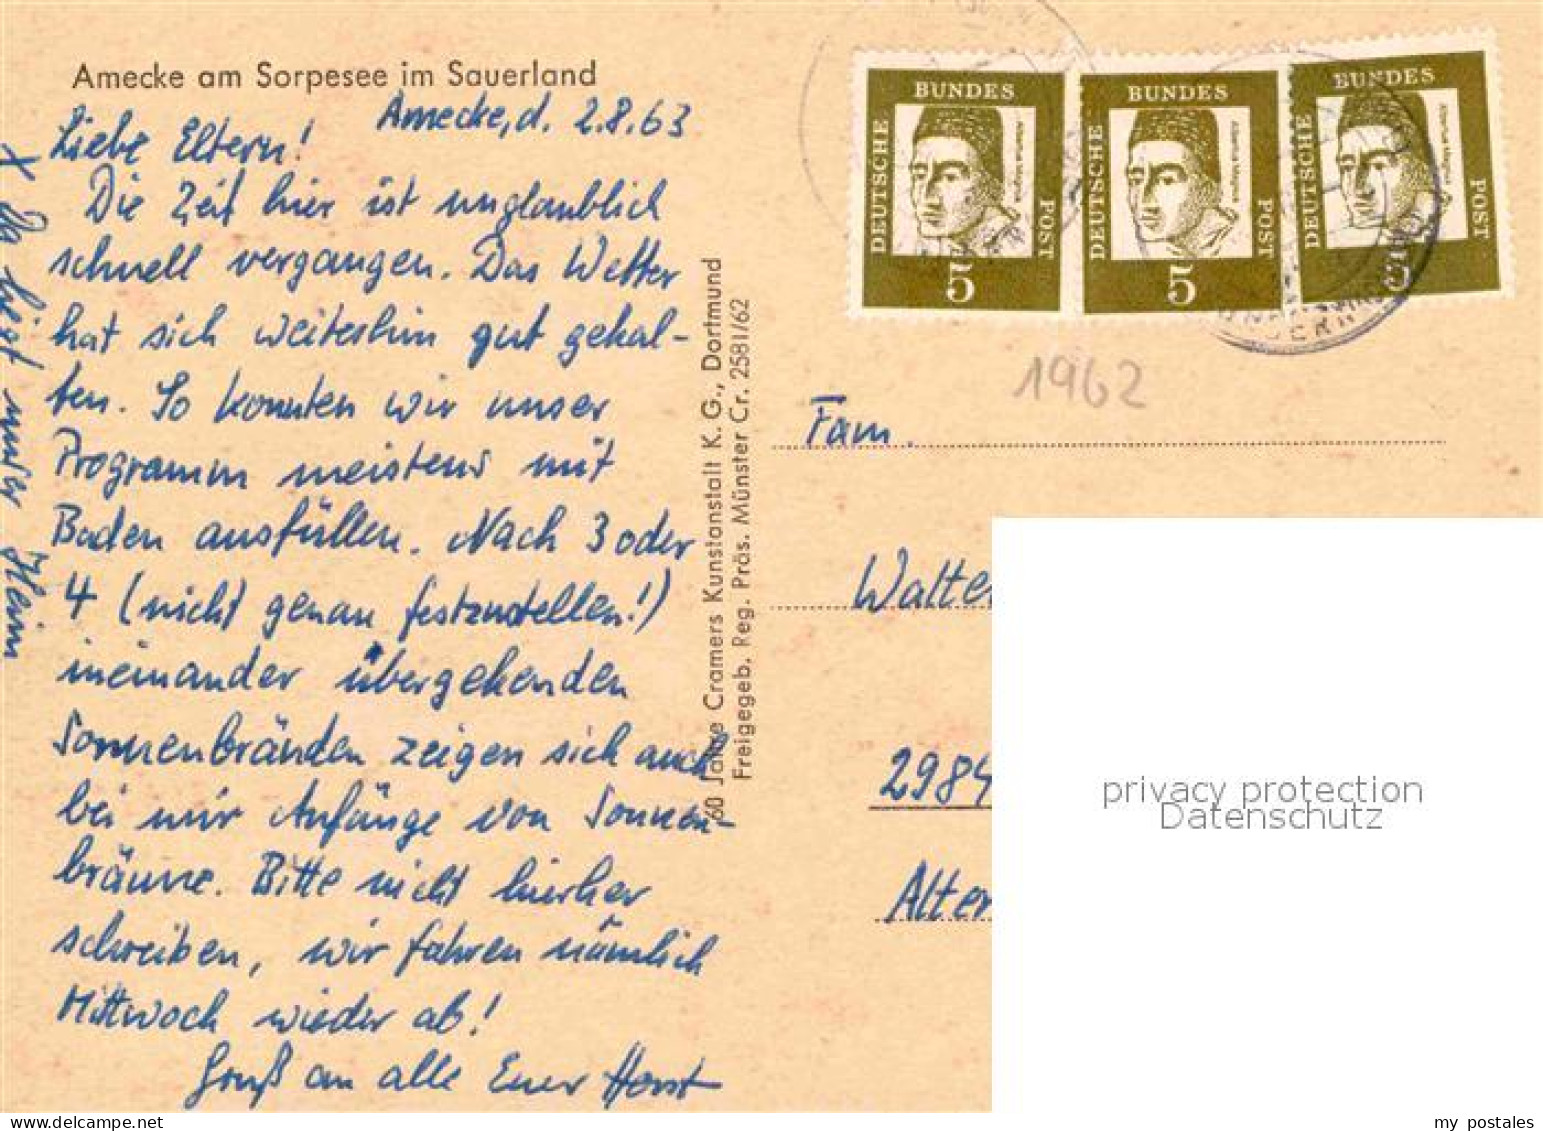 Amecke am Sorpesee im Sauerland
Amecke, d. 2.8.63
Liebe Eltern!
Die Zeit hier ist unglaublich
schnell vergangen. Das Wetter
hat sich weiterhin gut gehal-
ten. So konnten wir unser
Programm meistens mit
Baden ausfüllen. Nach 3 oder
4 (nicht genau festzustellen!)
ineinander übergehenden
Sonnenbränden zeigen sich auch
bei mir Anfänge von Sonnen-
bräune. Bitte nicht hierher
schreiben, wir fahren nämlich
Mittwoch wieder ab!
Gruß an alle Euer Horst
X Da liegt unser Heim
60 Jahre Cramers Kunstanstalt K. G., Dortmund
Freigegeb. Reg. Präs. Münster Cr. 2581/62
DEUTSCHE BUNDES POST
Albertus Magnus
5
DEUTSCHE BUNDES POST
Albertus Magnus
5
DEUTSCHE BUNDES POST
Albertus Magnus
5
1962
Fam.
Walte
2984
Alter
privacy protection
Datenschutz
my postales